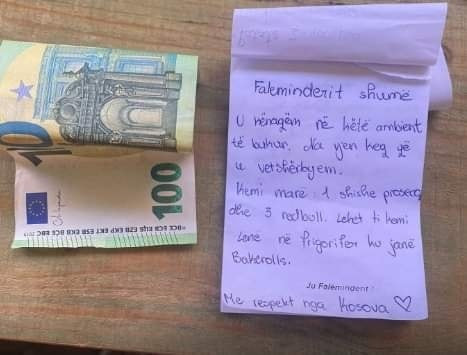 100
BCE ECB ЕЦБ EZB EKP EKT ESB EKB BĊE EBC
Faleminderit shumë
U hënagëm në këtë ambient
të bukur. Na vjen keq që
u vetshërbyem.
Kemi marë: 1 shishe prosecco
dhe 3 redbull. Lekët ti kemi
Lënë në frigorifer ku janë
Bakërolls.
Ju Faleminderit!
Me respekt nga Kosova ♡